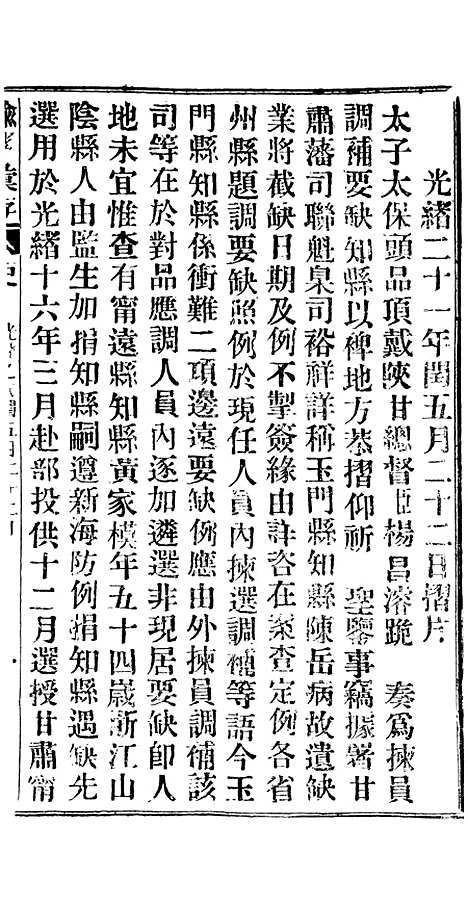 光緒二十一年閏五月二十二日摺片
太子太保頭品頂戴陝甘總督臣楊昌濬跪　奏爲揀員
調補要缺知縣以裨地方恭摺仰祈　聖鑒事竊據署甘
肅藩司聯魁臬司裕祥詳稱玉門縣知縣陳岳病故遺缺
業將截缺日期及例不掣簽緣由詳咨在案查定例各省
州縣題調要缺照例於現任人員內揀選調補等語今玉
門縣知縣係衝難二項邊遠要缺例應由外揀員調補該
司等在於對品應調人員內逐加遴選非現居要缺卽人
地未宜惟查有甯遠縣知縣黃家模年五十四歲浙江山
陰縣人由監生加捐知縣嗣遵新海防例捐知縣遇缺先
選用於光緒十六年三月赴部投供十二月選授甘肅甯
諭摺彙存
吏